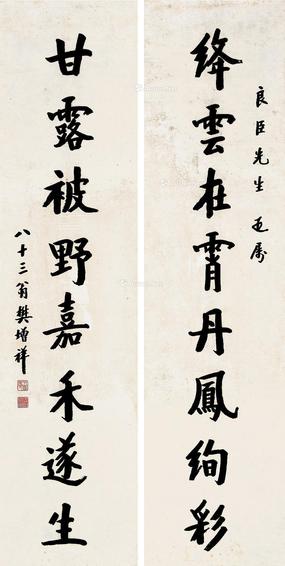 絳雲在霄丹鳳絢彩
良臣先生正屬
甘露被野嘉禾遂生
八十三翁樊增祥